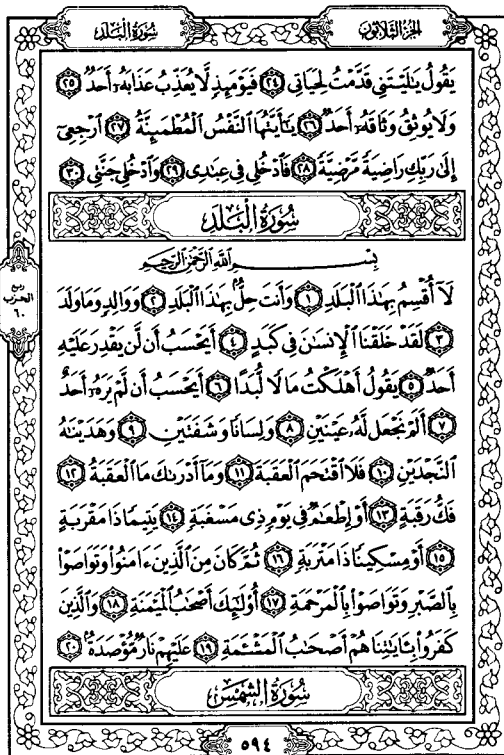 سُورَةُ الْبَلَدِ
الجُزْءُ الثَّلَاثُونَ
يَقُولُ يَـٰلَيْتَنِى قَدَّمْتُ لِحَيَاتِى ٢٤ فَيَوْمَئِذٍ لَّا يُعَذِّبُ عَذَابَهُۥٓ أَحَدٌ ٢٥
وَلَا يُوثِقُ وَثَاقَهُۥٓ أَحَدٌ ٢٦ يَـٰٓأَيَّتُهَا ٱلنَّفْسُ ٱلْمُطْمَئِنَّةُ ٢٧ ٱرْجِعِىٓ
إِلَىٰ رَبِّكِ رَاضِيَةً مَّرْضِيَّةً ٢٨ فَٱدْخُلِى فِى عِبَـٰدِى ٢٩ وَٱدْخُلِى جَنَّتِى ٣٠
سُورَةُ الْبَلَدِ
بِسْمِ ٱللَّهِ ٱلرَّحْمَـٰنِ ٱلرَّحِيمِ
لَآ أُقْسِمُ بِهَـٰذَا ٱلْبَلَدِ ١ وَأَنتَ حِلٌّۢ بِهَـٰذَا ٱلْبَلَدِ ٢ وَوَالِدٍ وَمَا وَلَدَ
٣ لَقَدْ خَلَقْنَا ٱلْإِنسَـٰنَ فِى كَبَدٍ ٤ أَيَحْسَبُ أَن لَّن يَقْدِرَ عَلَيْهِ
أَحَدٌ ٥ يَقُولُ أَهْلَكْتُ مَالًا لُّبَدًا ٦ أَيَحْسَبُ أَن لَّمْ يَرَهُۥٓ أَحَدٌ
٧ أَلَمْ نَجْعَل لَّهُۥ عَيْنَيْنِ ٨ وَلِسَانًا وَشَفَتَيْنِ ٩ وَهَدَيْنَـٰهُ
ٱلنَّجْدَيْنِ ١٠ فَلَا ٱقْتَحَمَ ٱلْعَقَبَةَ ١١ وَمَآ أَدْرَىٰكَ مَا ٱلْعَقَبَةُ ١٢
فَكُّ رَقَبَةٍ ١٣ أَوْ إِطْعَـٰمٌ فِى يَوْمٍ ذِى مَسْغَبَةٍ ١٤ يَتِيمًا ذَا مَقْرَبَةٍ
١٥ أَوْ مِسْكِينًا ذَا مَتْرَبَةٍ ١٦ ثُمَّ كَانَ مِنَ ٱلَّذِينَ ءَامَنُوا۟ وَتَوَاصَوْا۟
بِٱلصَّبْرِ وَتَوَاصَوْا۟ بِٱلْمَرْحَمَةِ ١٧ أُو۟لَـٰٓئِكَ أَصْحَـٰبُ ٱلْمَيْمَنَةِ ١٨ وَٱلَّذِينَ
كَفَرُوا۟ بِـَٔايَـٰتِنَا هُمْ أَصْحَـٰبُ ٱلْمَشْـَٔمَةِ ١٩ عَلَيْهِمْ نَارٌ مُّؤْصَدَةٌۢ ٢٠
سُورَةُ الشَّمْسِ
ربع
الحزب
٦٠
٥٩٤